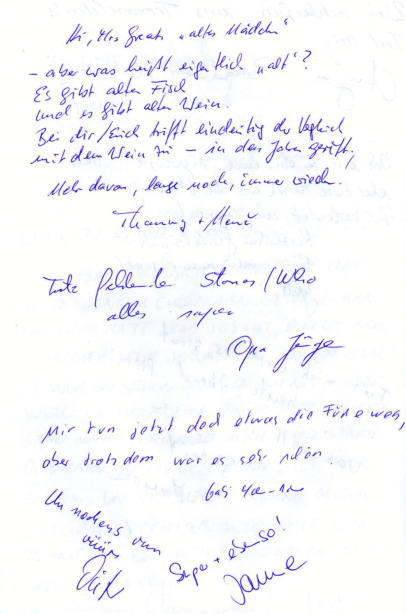 Hi, Mrs Great „altes Mädchen“
– aber was heißt eigentlich „alt“?
Es gibt alten Fisch
und es gibt alten Wein.
Bei dir/Euch trifft eindeutig der Vergleich
mit dem Wein zu – in den Jahren gereift,
Mehr davon, lange noch, immer wieder.
Trotz fehlende Stones/Who
alles super
Opa Jürgen
Mir tun jetzt doch etwas die Füße weh,
aber trotzdem war es sehr schön.
Um nochens von
Super + ebenso!
Janne